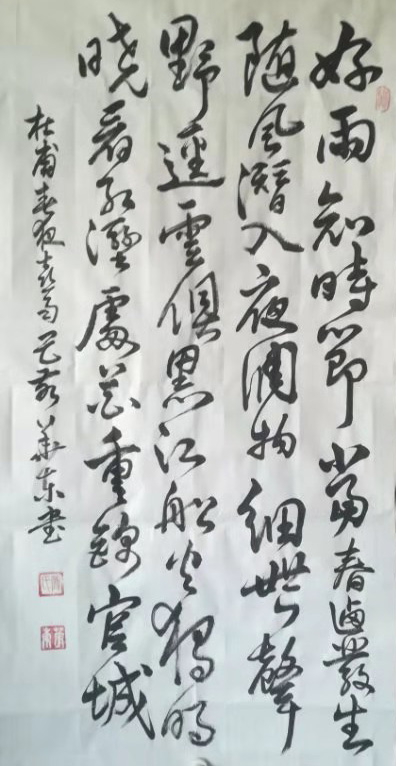 好雨知時節當春迺發生
随風潛入夜潤物細無聲
野逕雲俱黑江船火獨明
曉看紅濕處花重錦官城
杜甫春夜喜雨 華東書